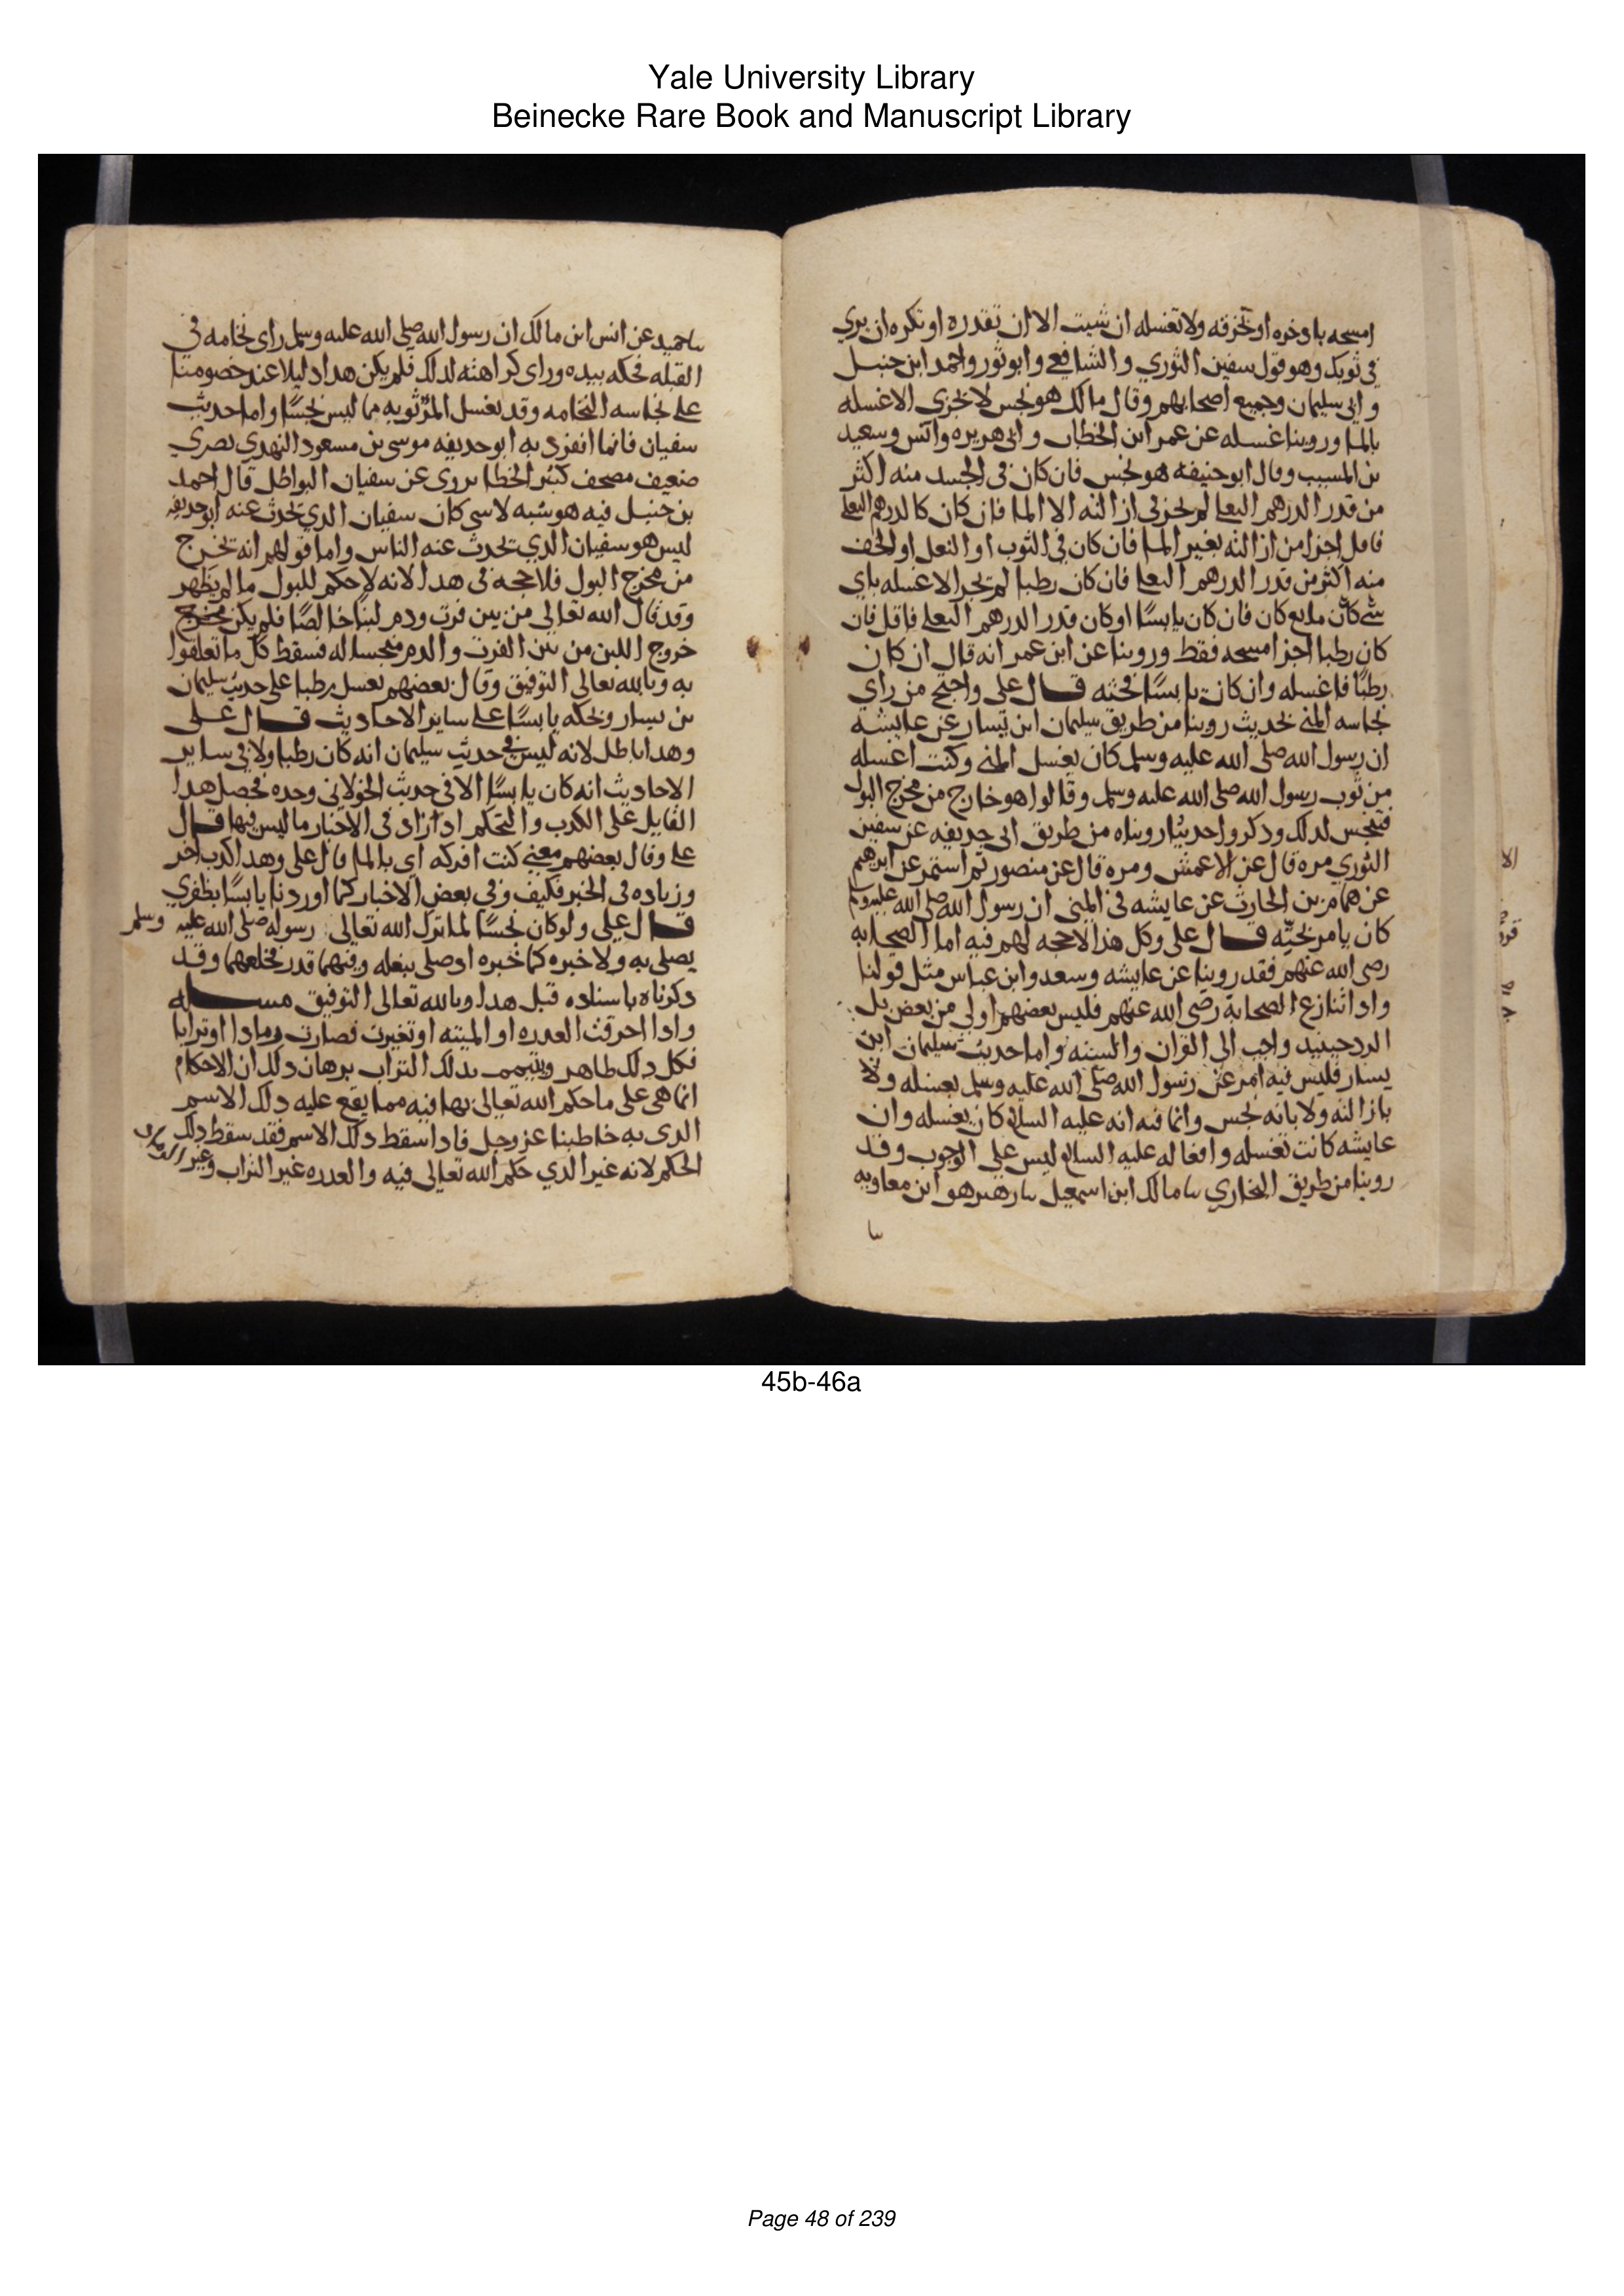 Yale University Library
Beinecke Rare Book and Manuscript Library
امسحه باذخره او بخرقه ولا تغسله ان شيت الا ان تقدره او تكره ان يري
في ثوبك وهو قول سفين الثوري والشافعي وابو ثور واحمد ابن حنبل
وابي سليمان وجميع اصحابهم وقال مالك هو نجس لا يجزي الا غسله
بالما وروينا غسله عن عمر ابن الخطاب وابي هريره وانس وسعيد
بن المسيب وقال ابو حنيفه هو نجس فان كان في الجسد منه اكثر
من قدر الدرهم البغلي لم يجز في ازالته الا الما فان كان كالدرهم البغلي
فاقل اجزا من ازالته بغير الما فان كان في الثوب او النعل او الخف
منه اكثر من قدر الدرهم البغلي فان كان رطبا لم يجز الا غسله باي
شي كان مايع كان فان كان يابسًا او كان قدر الدرهم البغلي فاقل فان
كان رطبا اجزا مسحه فقط وروينا عن ابن عمر انه قال ان كان
رطبًا فاغسله وان كان يابسًا فحته قال علي واحتج من راي
نجاسه المني بحديث روينا من طريق سليمان ابن يسار عن عايشه
ان رسول الله صلى الله عليه وسلم كان يغسل المني وكنت اغسله
من ثوب رسول الله صلى الله عليه وسلم وقالوا هو خارج من مخرج البول
فينجس لدلك ودكروا حديثًا رويناه من طريق ابي حديفه عن سفين
الثوري مره قال عن الاعمش ومره قال عن منصور ثم استمر عن ابرهيم
عن همام بن الحارث عن عايشه في المني ان رسول الله صلى الله عليه وسلم
كان يامر بحتّه قال علي وكل هذا لا حجه لهم فيه اما الصحابه
رضي الله عنهم فقد روينا عن عايشه وسعد وابن عباس مثل قولنا
وادا تنازع الصحابة رضي الله عنهم فليس بعضهم اولى من بعض بل
الرد حينيد واجب الى القران والسنه واما حديث سليمان ابن
يسار فليس فيه امر من رسول الله صلى الله عليه وسلم بغسله ولا
بازالته ولا بانه نجس وانما فيه انه عليه السلام كان يغسله وان
عايشه كانت تغسله وافعاله عليه السلام ليس على الوجوب وقد
روينا من طريق البخاري سا مالك ابن اسمعيل سا زهير هو ابن معاويه
سا
سا حميد عن انس ابن مالك ان رسول الله صلى الله عليه وسلم راى نخامه في
القبله فحكه بيده وراى كراهته لدلك فلم يكن هدا دليلا عند خصومنا
على نجاسه النخامه وقد يغسل المرُ ثوبه مما ليس نجسًا واما حديث
سفيان فانما انفرد به ابو حديفه موسى بن مسعود النهدي بصري
ضعيف مصحف كثير الخطا يروى عن سفيان البواطل قال احمد
بن حنبل فيه هو شبه لاسي كان سفيان الدي يحدث عنه ابو حديفه
ليس هو سفيان الدي يحدث عنه الناس واما قولهم انه يخرج
من مخرج البول فلا حجه في هدا لانه لا حكم للبول ما لم يظهر
وقد قال الله تعالي من بين فرث ودم لبنًا خالصًا فلم يكن مخرج
خروج اللبن من بين الفرث والدم منجسا له فسقط كل ما تعلقوا
به وبالله تعالي التوفيق وقال بعضهم يغسل رطبا على حديث سليمان
بن يسار ونحكه يابسًا على ساير الاحاديث قال علي
وهدا باطل لانه ليس في حديث سليمان انه كان رطبا ولا في ساير
الاحاديث انه كان يابسًا الا في حديث الخولاني وحده فحصل هدا
القايل على الكدب والتحكم اد زاد في الاخبار ما ليس فيها قال
علي وقال بعضهم معني كنت افركه اي بالما قال علي وهدا كدب اخر
وزياده في الخبر فكيف وفي بعض الاخبار كما اوردنا يابسًا بظفري
قال علي ولو كان نجسًا لما ترك الله تعالى رسوله صلى الله عليه وسلم
يصلي به ولاخبره كما خبره اد صلى بنعله وفيهما قدر فخلعهما وقد
دكرناه باسناده قبل هدا وبالله تعالى التوفيق مساله
وادا احرقت العدره او الميته او تغيرت فصارت رمادا او ترابا
فكل دلك طاهر ويتيمم بدلك التراب برهان دلك ان الاحكام
انما هي على ما حكم الله تعالى بها فيه مما يقع عليه دلك الاسم
الدى به خاطبنا عز وجل فادا سقط دلك الاسم فقد سقط دلك
الحكم لانه غير الدي حكم الله تعالى فيه والعدره غير التراب وغير الرماد
45b-46a
Page 48 of 239